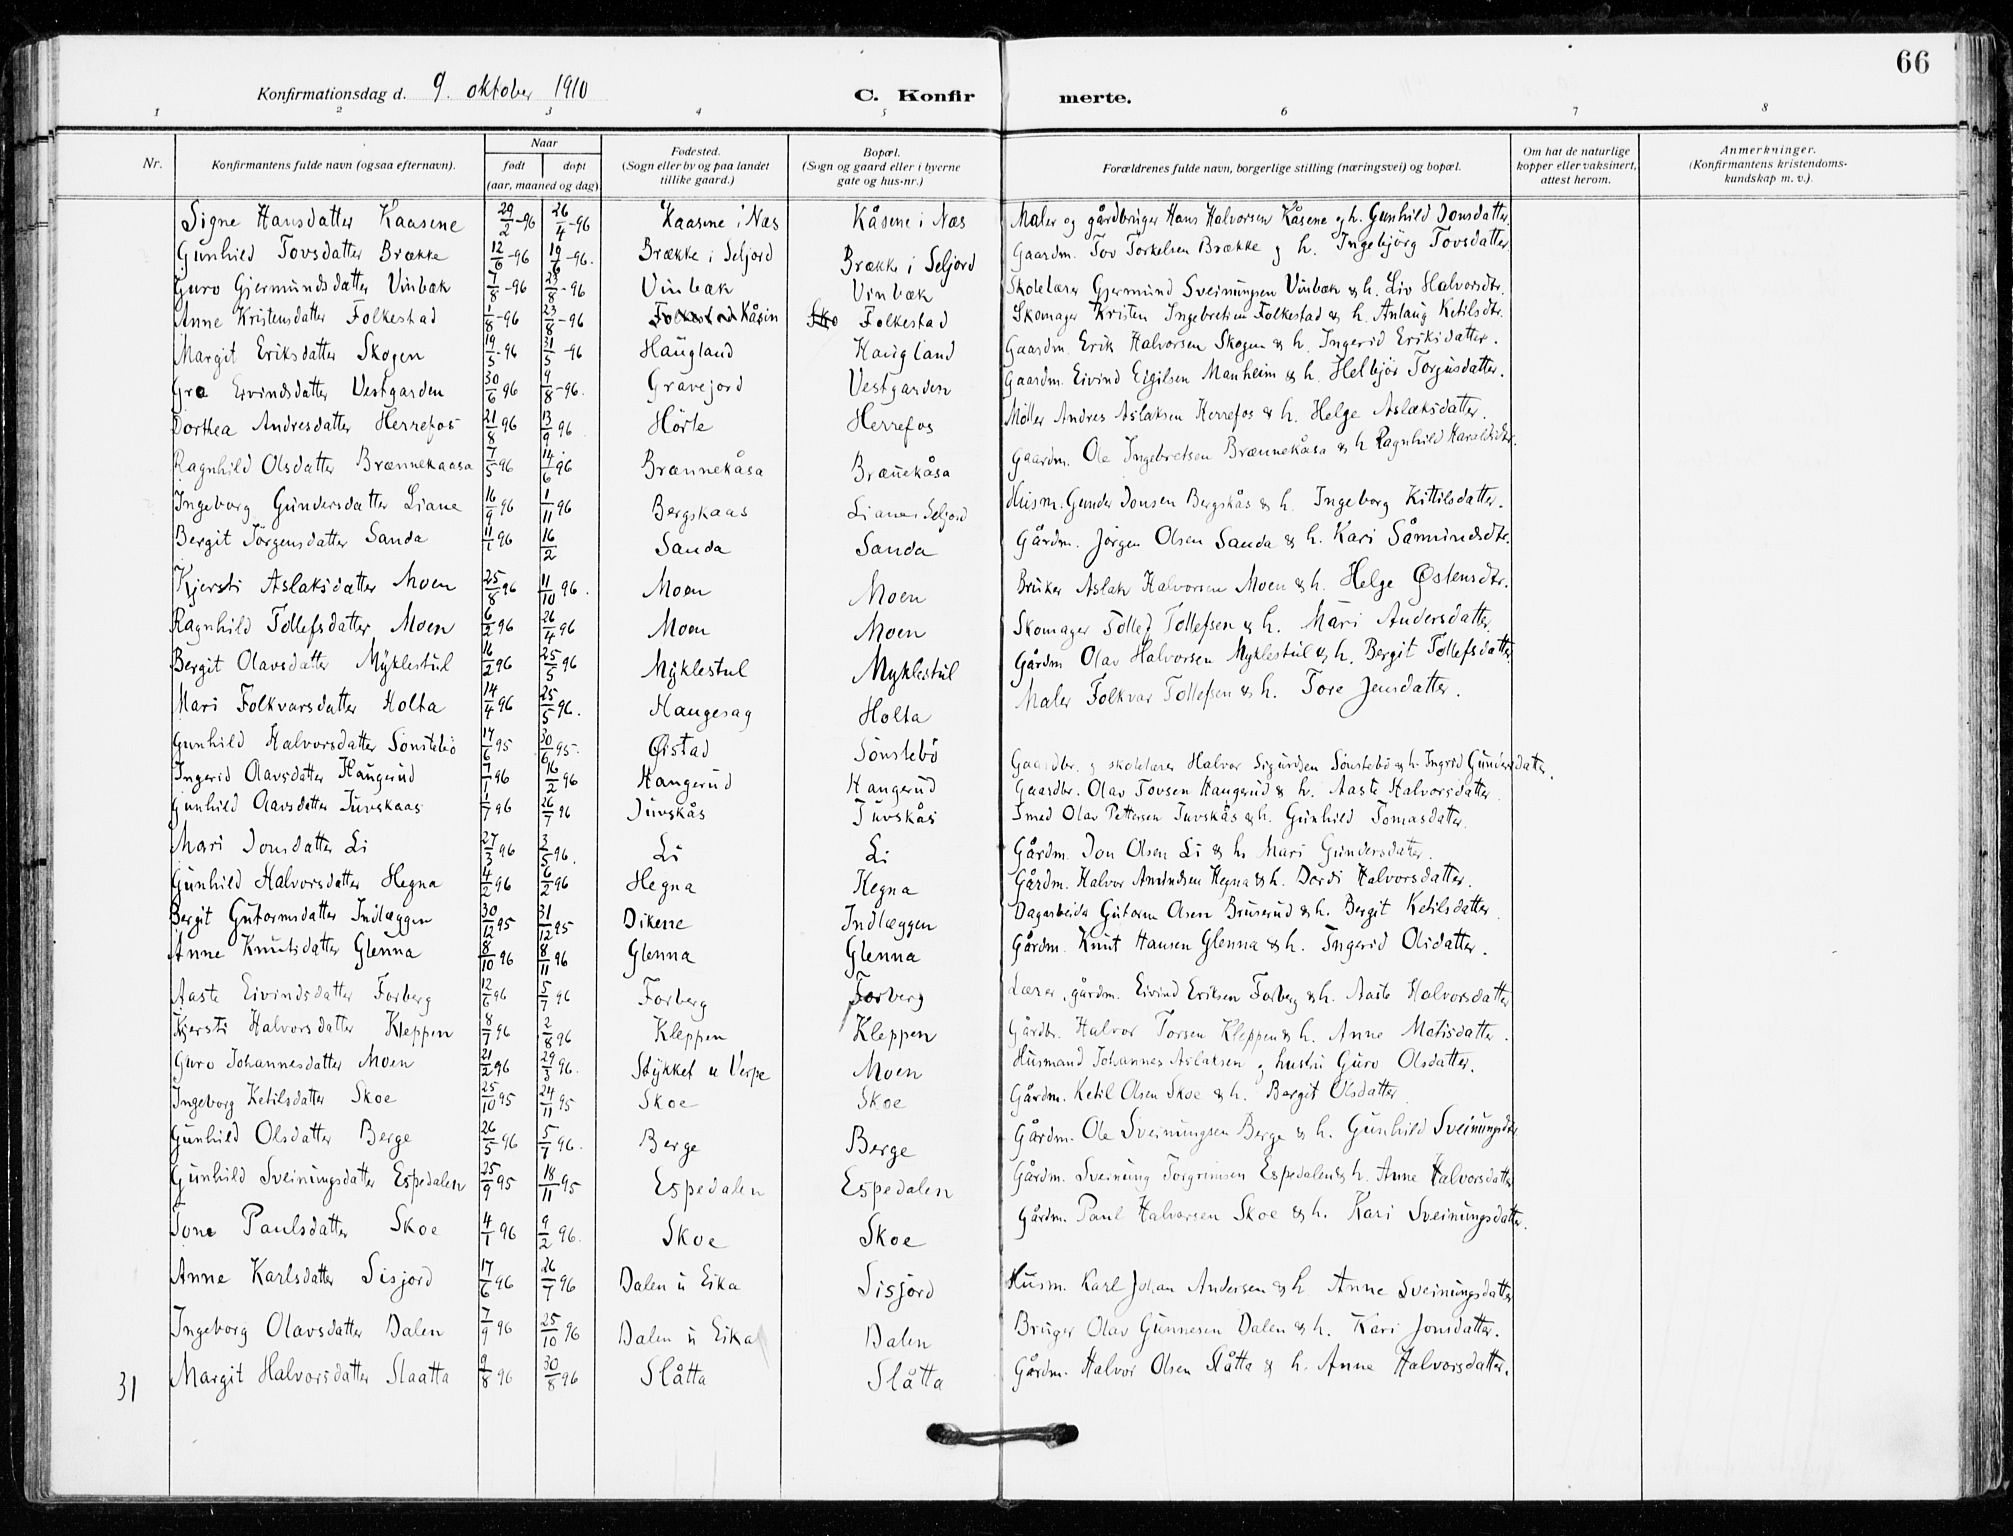 66
Konfirmationsdag d. 9. oktober 1910 C. Konfirmerte.
1 2 3 4 5 6 7 8
Nr. Konfirmantens fulde navn (ogsaa efternavn). Naar født døpt (aar, maaned og dag) Fødested. (Sogn eller by og paa landet tillike gaard.) Bopæl. (Sogn og gaard eller i byerne gate og hus-nr.) Forældrenes fulde navn, borgerlige stilling (næringsvei) og bopæl. Om hat de naturlige kopper eller vaksinert, attest herom. Anmerkninger. (Konfirmantens kristendomskundskap m. v.).
Signe Hansdatter Kaasene 29/2-96 26/4-96 Kaasene i Næs Kåsene i Næs Maler og gårdbruger Hans Halvorsen Kåsene & h. Gunhild Jonsdatter
Gunhild Tovsdatter Brække 12/6-96 19/6-96. Brække i Seljord Brække i Seljord Gaardm. Tov Torkelsen Brække & h. Ingebjörg Tovsdatter
Guro Gjermundsdatter Vinbæk 7/8-96 23/8-96 Vinbæk Vinbæk Skolelærer Gjermund Sveinungsen Vinbæk & h. Liv Halvorsdtr.
Anne Kristensdatter Folkestad 1/8-96 23/8-96 Folkestad Kåsin Sko Folkestad Skomager Kristen Ingebretsen Folkestad & h. Anlaug Ketilsdtr.
Margit Eriksdatter Skogen 19/5-96 31/5-96 Haugland Haugland Gaardm. Erik Halvorsen Skogen & h. Ingerid Eriksdatter.
Gro Eivindsdatter Vestgarden 30/6 96 9/8-96. Gravejord Vestgarden Gaardm. Eivind Eigilsen Manheim & h. Helbjör Torjusdatter.
Dorthea Andresdatter Herrefos 21/8 96 13/9 96 Hörte Herrefos Møller Andres Aslaksen Herrefos & h. Helge Aslaksdatter.
Ragnhild Olsdatter Brænnekaasa 7/5 96 14/6 96 Brænnekåsa Brænekåsa Gaardm. Ole Ingebretsen Brænnekåsa & h Ragnhild Haraldsdtr.
Ingeborg Gundersdatter Liane 16/9 96 1/11 96 Bergskaas Liane i Seljord Husm. Gunder Jonsen Bergskås & h. Ingeborg Kittilsdatter.
Bergit Jörgensdatter Sanda 11/1 96 16/2 Sanda Sanda Gårdm. Jørgen Olsen Sanda & h. Kari Såmundsdtr.
Kjersti Aslaksdatter Moen 25/8 96 11/10 96. Moen Moen Bruker Aslak Halvorsen Moen & h. Helge Østensdtr.
Ragnhild Tollefsdatter Moen 6/2 96 26/4 96 Moen Moen Skomager Tollef Tollefsen & h. Mari Andersdatter
Bergit Olavsdatter Myklestul 16/2 96 25/5 96 Myklestul Myklestul Gårdm Olav Halvorsen Myklestul & h. Bergit Tollefsdatter
Mari Folkvarsdatter Holta 14/4 96 25/5 96. Haugesag Holta Maler Folkvar Tollefsen & h. Tore Jensdatter.
Gunhild Halvorsdatter Sönstebö 17/6 95 30/6 95. Øistad Sönstebö Gaardbr. og skolelærer Halvor Sigurdsen Sönstebö & h. Ingrid Gundersdatter.
Ingerid Olavsdatter Haugerud 7/1 96 16/2 96 Haugerud Haugerud Gaardbr. Olav Tovsen Haugerud & h. Aaste Halvorsdatter
Gunhild Olavsdatter Juvskaas 1/7 96 26/7 96 Juvskås Juvskås Smed Olav Pettersen Juvskås & h. Gunhild Tomasdatter.
Mari Jonsdatter Li 27/3 96 3/5 96. Li Li Gårdm. Jon Olsen Li & h. Mari Gundersdatter.
Gunhild Halvorsdatter Hegna 4/2 96 6/2 96 Hegna Hegna Gårdm. Halvor Amundsen Hegna & h. Dordi Halvorsdatter.
Bergit Gutormsdatter Indlæggen 30/12 95 31/12 95 Dikene Indlæggen Dagarbeider Gutorm Olsen Bruserud & h. Bergit Ketilsdatter.
Anne Knutsdatter Glenna 8/10 96 8/11 96 Glenna Glenna Gårdm. Knut Hansen Glenna & h. Ingerid Olsdatter.
Aaste Eivindsdatter Forberg 12/6 96 5/7 96 Forberg Forberg Lærer, gårdm. Eivind Eriksen Forberg & h. Aaste Halvorsdatter
Kjersti Halvorsdatter Kleppen 8/7 96 2/8 96 Kleppen Kleppen Gårdbr. Halvor Torsen Kleppen & h. Anne Matisdatter.
Guro Johannesdatter Moen 21/2 96 29/3 96. Stykket u Verpe Moen Husmand Johannes Aslaksen og hustri Guro Olsdatter.
Ingeborg Ketilsdatter Skoe 25/10 95 24/11 95 Skoe Skoe Gårdm. Ketil Olsen Skoe & h. Bergit Olsdatter
Gunhild Olsdatter Berge 26/5 96 5/7 96. Berge Berge Gårdm. Ole Sveinungsen Berge & h. Gunhild Sveinungsdtr
Gunhild Sveinungsdatter Espedalen 25/9 95 18/11 95 Espedalen Espedalen Gårdm. Sveinung Torgrimsen Espedalen & h. Anne Halvorsdatter
Tone Paulsdatter Skoe 4/1 96 9/2 96. Skoe Skoe Gårdm. Paul Halvorsen Skoe & h. Kari Sveinungsdatter.
Anne Karlsdatter Sisjord 17/6 96 26/7 96 Dalen u Eika Sisjord Husm. Karl Johan Andersen & h. Anne Sveinungsdatter
Ingeborg Olavsdatter Dalen 7/9 96 25/10 96 Dalen u Eika Dalen Bruger Olav Gunnesen Dalen & h. Kari Jonsdatter.
31 Margit Halvorsdatter Slaatta 9/8 96 30/8 96 Slåtta Slåtta Gårdm. Halvor Olsen Slåtta & h. Anne Halvorsdatter.